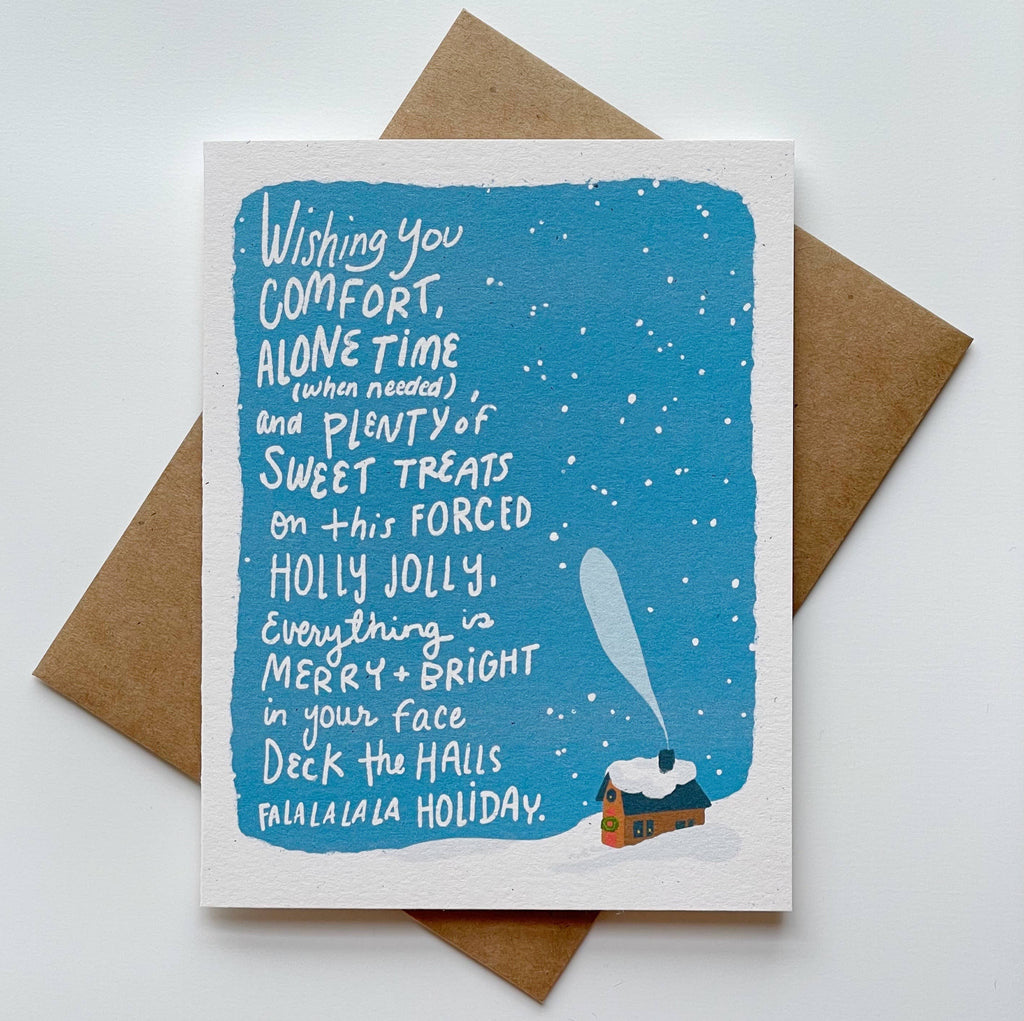 Wishing you
COMFORT,
ALONE TIME
(when needed),
and PLENTY of
SWEET TREATS
on this FORCED
HOLLY JOLLY,
Everything is
MERRY + BRIGHT
in your face
DECK the HALLS
FALALALALA HOLIDAY.